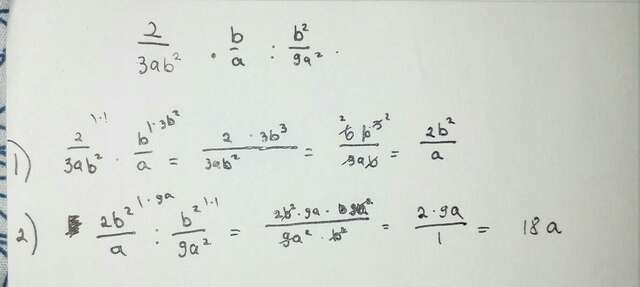 2/(3ab²) · b/a : b²/(9a²).
1) 2/(3ab²) ^1·1 · b/a ^1·3b² = (2 · 3b³)/(3ab²) = (6b³)/(3ab) ² ² = 2b²/a
2) 2b²/a ^1·9a : b²/(9a²) ^1·1 = (2b² · 9a ·)/(9a² · b²) = (2 · 9a)/1 = 18a